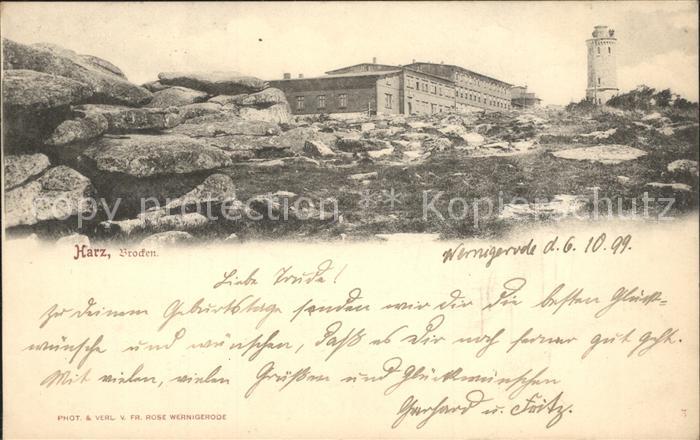 * * * Copyright * * * Kopierschutz * * *
Harz, Brocken.
Wernigerode d. 6. 10. 99.
Liebe Trude!
Zu deinem Geburtstage senden wir dir die besten Glück-
wünsche und wünschen, daß es Dir noch ferner gut geht.
Mit vielen, vielen Grüßen und Glückwünschen
Gerhard u. Fritz.
PHOT. & VERL. V. FR. ROSE WERNIGERODE